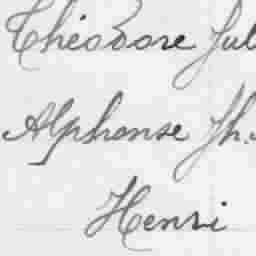 Théodore Jul
Alphonse Jh.
Henri